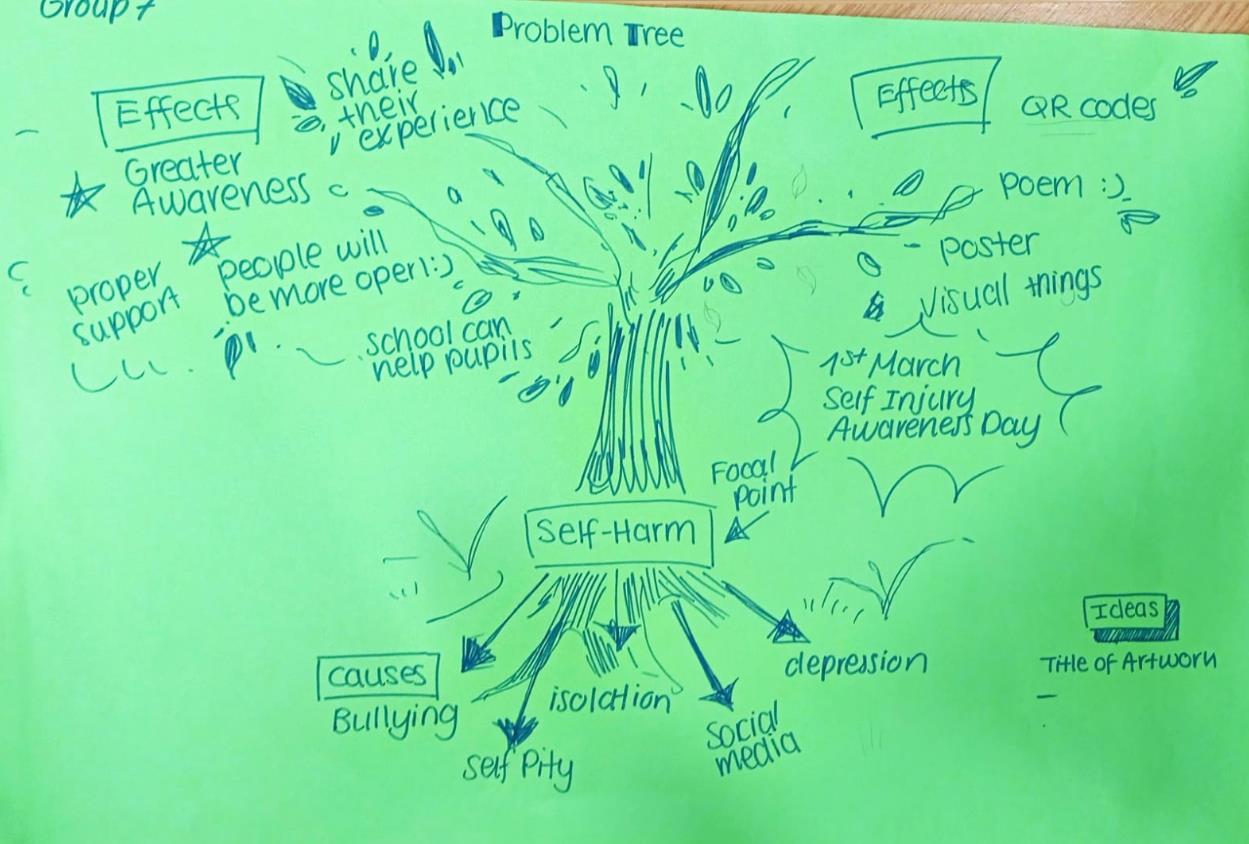 Group 7
Problem Tree
Effects
share
their
experience
Greater
Awareness
people will
be more open :)
proper
support
school can
help pupils
Effects
QR codes
poem :)
- poster
visuall things
1st March
Self Injury
Awareness Day
Focal
point
Self-Harm
causes
Bullying
self Pity
isolation
social
media
depression
Ideas
Title of Artwork
-